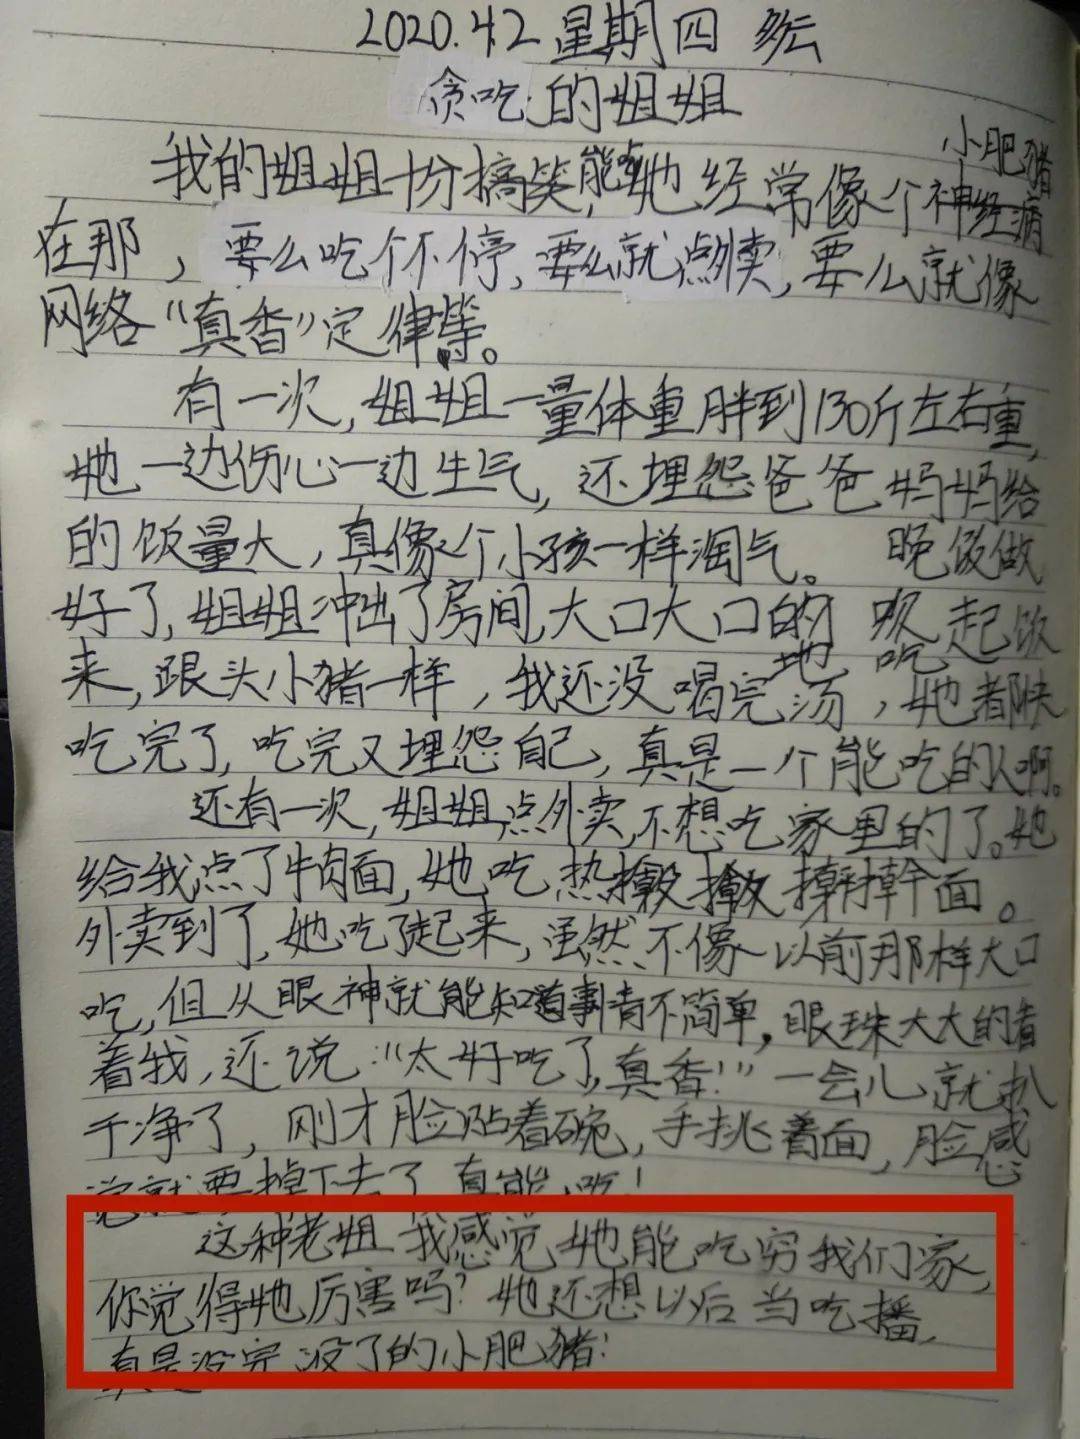 2020.4.2 星期四 多云
贪吃的姐姐
小肥猪
我的姐姐十分搞笑,能吃,她经常像个神经病
在那，要么吃个不停,要么就点外卖,要么就像
网络“真香”定律等。
有一次,姐姐一量体重胖到130斤左右重,
她一边伤心一边生气,还埋怨爸爸妈妈给
的饭量大,真像个小孩一样淘气。 晚饭做
好了,姐姐冲出了房间,大口大口的 起饭
地 吃
来,跟头小猪一样,我还没喝完汤,她都快
吃完了,吃完又埋怨自己,真是一个能吃的人啊。
还有一次,姐姐点外卖,不想吃家里的了。她
给我点了牛肉面,她吃热 面。
外卖到了,她吃了起来,虽然不像以前那样大口
吃,但从眼神就能知道事情不简单,眼珠大大的看
着我,还说:“太好吃了,真香!”一会儿就扒
干净了,刚才脸贴着碗,手挑着面,脸感
觉就要掉下去了,真能吃!
这种老姐我感觉她能吃穷我们家,
你觉得她厉害吗?她还想以后当吃播,
真是没完没了的小肥猪!